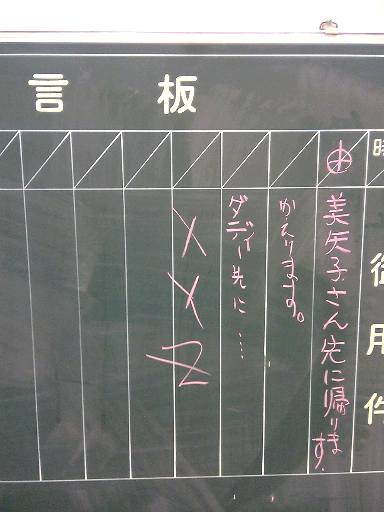 言板
時
御用件
美矢子さん先に帰ります
かえります。
ダディー先に…
XYZ